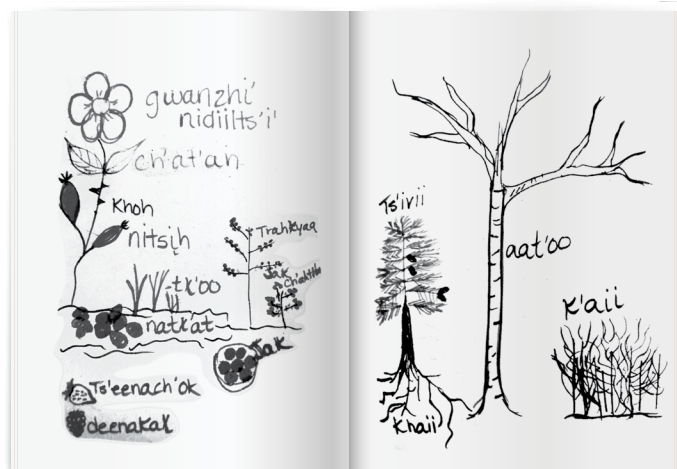 gwanzhi'
nidiilts'i'
ch'at'an
Khoh
nitsįh
tł'oo
Trahkyaa
Jak
natł'at
Jak
Ts'eenach'ok
deenakał
Ts'ivii
aat'oo
K'aii
Khaii